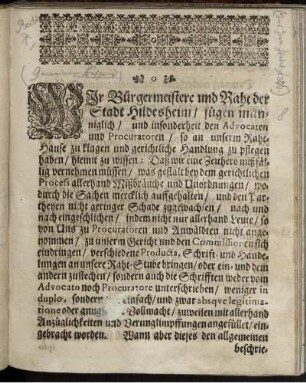 WIr Bürgermeistere und Raht der
Stadt Hildesheim / fügen män-
niglich / und insonderheit den Advocaten
und Procuratoren / so an unserm Raht-
Hause zu klagen und gerichtliche Handlung zu pflegen
haben / hiemit zu wissen: Daß wir eine Zeithero mißfäl-
lig vernehmen müssen / was gestalt bey dem gerichtlichen
Process allerhand Mißbräuche und Unordnungen / wo-
durch die Sachen mercklich auffgehalten / und den Par-
theyen nicht geringer Schade zugewachsen / nach und
nach eingeschlichen / indem nicht nur allerhand Leute / so
von Uns zu Procuratoren und Anwäldten nicht ange-
nommen / zu unserm Gericht und den Commissionen sich
eindringen / verschiedene Producta, Schrift- und Hand-
lungen an unsere Raht-Stube bringen / oder ein- und dem
andern zustecken / sondern auch die Schrifften weder vom
Advocato noch Procuratore unterschrieben / weniger in
duplo, sondern einfach / und zwar absqve legitima-
tione oder gnug Vollmacht / zuweilen mit allerhand
Anzüglichkeiten und Verunglimpffungen angefüllet / ein-
gebracht worden. Wann aber dieses den allgemeinen
beschrie-